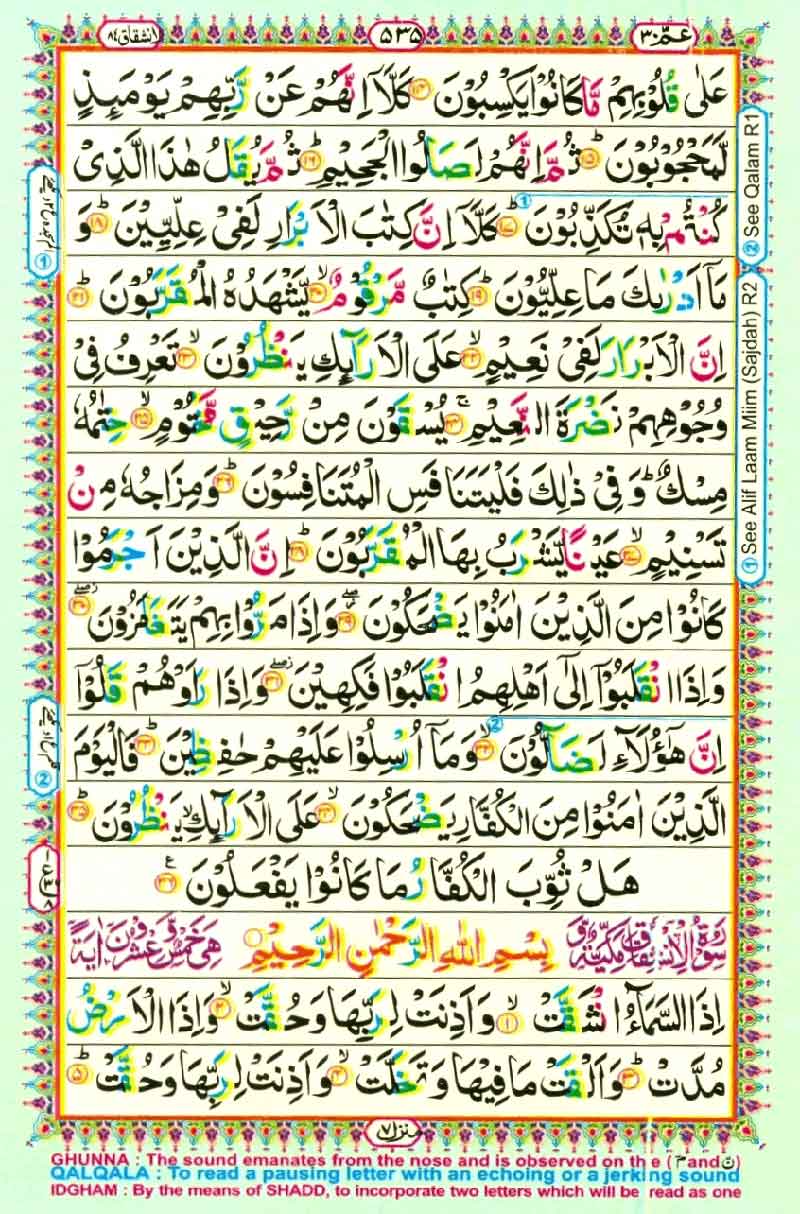 عَمَّ ٣٠
٥٣٥
الانشقاق ٨٤
عَلٰى قُلُوْبِهِمْ مَّا كَانُوْا يَكْسِبُوْنَ ۝١٤ كَلَّاۤ اِنَّهُمْ عَنْ رَّبِّهِمْ يَوْمَىِٕذٍ
لَّمَحْجُوْبُوْنَ ؕ۝١٥ ثُمَّ اِنَّهُمْ لَصَالُوا الْجَحِيْمِ ؕ۝١٦ ثُمَّ يُقَالُ هٰذَا الَّذِىْ
كُنْتُمْ بِهٖ تُكَذِّبُوْنَ ؕ۝١٧ كَلَّاۤ اِنَّ كِتٰبَ الْاَبْرَارِ لَفِىْ عِلِّيِّيْنَ ؕ۝١٨ وَ
مَاۤ اَدْرٰىكَ مَا عِلِّيُّوْنَ ؕ۝١٩ كِتٰبٌ مَّرْقُوْمٌ ۙ۝٢٠ يَّشْهَدُهُ الْمُقَرَّبُوْنَ ؕ۝٢١
اِنَّ الْاَبْرَارَ لَفِىْ نَعِيْمٍ ۙ۝٢٢ عَلَى الْاَرَآىِٕكِ يَنْظُرُوْنَ ۙ۝٢٣ تَعْرِفُ فِىْ
وُجُوْهِهِمْ نَضْرَةَ النَّعِيْمِ ۚ۝٢٤ يُسْقَوْنَ مِنْ رَّحِيْقٍ مَّخْتُوْمٍ ۙ۝٢٥ خِتٰمُهٗ
مِسْكٌ ؕ وَفِىْ ذٰلِكَ فَلْيَتَنَافَسِ الْمُتَنَافِسُوْنَ ؕ۝٢٦ وَمِزَاجُهٗ مِنْ
تَسْنِيْمٍ ۙ۝٢٧ عَيْنًا يَّشْرَبُ بِهَا الْمُقَرَّبُوْنَ ؕ۝٢٨ اِنَّ الَّذِيْنَ اَجْرَمُوْا
كَانُوْا مِنَ الَّذِيْنَ اٰمَنُوْا يَضْحَكُوْنَ ۖ۝٢٩ وَاِذَا مَرُّوْا بِهِمْ يَتَغَامَزُوْنَ ۖ۝٣٠
وَاِذَا انْقَلَبُوْۤا اِلٰٓى اَهْلِهِمُ انْقَلَبُوْا فَكِهِيْنَ ۖ۝٣١ وَاِذَا رَاَوْهُمْ قَالُوْۤا
اِنَّ هٰۤؤُلَآءِ لَضَآلُّوْنَ ۙ۝٣٢ وَمَاۤ اُرْسِلُوْا عَلَيْهِمْ حٰفِظِيْنَ ؕ۝٣٣ فَالْيَوْمَ
الَّذِيْنَ اٰمَنُوْا مِنَ الْكُفَّارِ يَضْحَكُوْنَ ۙ۝٣٤ عَلَى الْاَرَآىِٕكِ ۙ يَنْظُرُوْنَ ؕ۝٣٥
هَلْ ثُوِّبَ الْكُفَّارُ مَا كَانُوْا يَفْعَلُوْنَ ۝٣٦
سُوْرَةُ الْاِنْشِقَاقِ مَكِّيَّةٌ وَّ بِسْمِ اللّٰهِ الرَّحْمٰنِ الرَّحِيْمِ هِىَ خَمْسٌ وَّعِشْرُوْنَ اٰيَةً
اِذَا السَّمَآءُ انْشَقَّتْ ۙ۝١ وَاَذِنَتْ لِرَبِّهَا وَحُقَّتْ ۙ۝٢ وَاِذَا الْاَرْضُ
مُدَّتْ ؕ۝٣ وَاَلْقَتْ مَا فِيْهَا وَتَخَلَّتْ ۙ۝٤ وَاَذِنَتْ لِرَبِّهَا وَحُقَّتْ ؕ۝٥
② See Qalam R1
① See Alif Laam Miim (Sajdah) R2
منزل ٧
GHUNNA : The sound emanates from the nose and is observed on the (مّ and نّ)
QALQALA : To read a pausing letter with an echoing or a jerking sound
IDGHAM : By the means of SHADD, to incorporate two letters which will be read as one